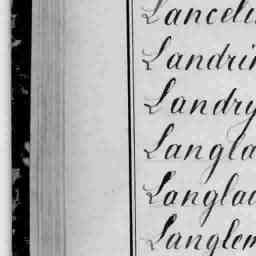 Lanceli
Landrin
Landry
Langla
Langlad
Langlem